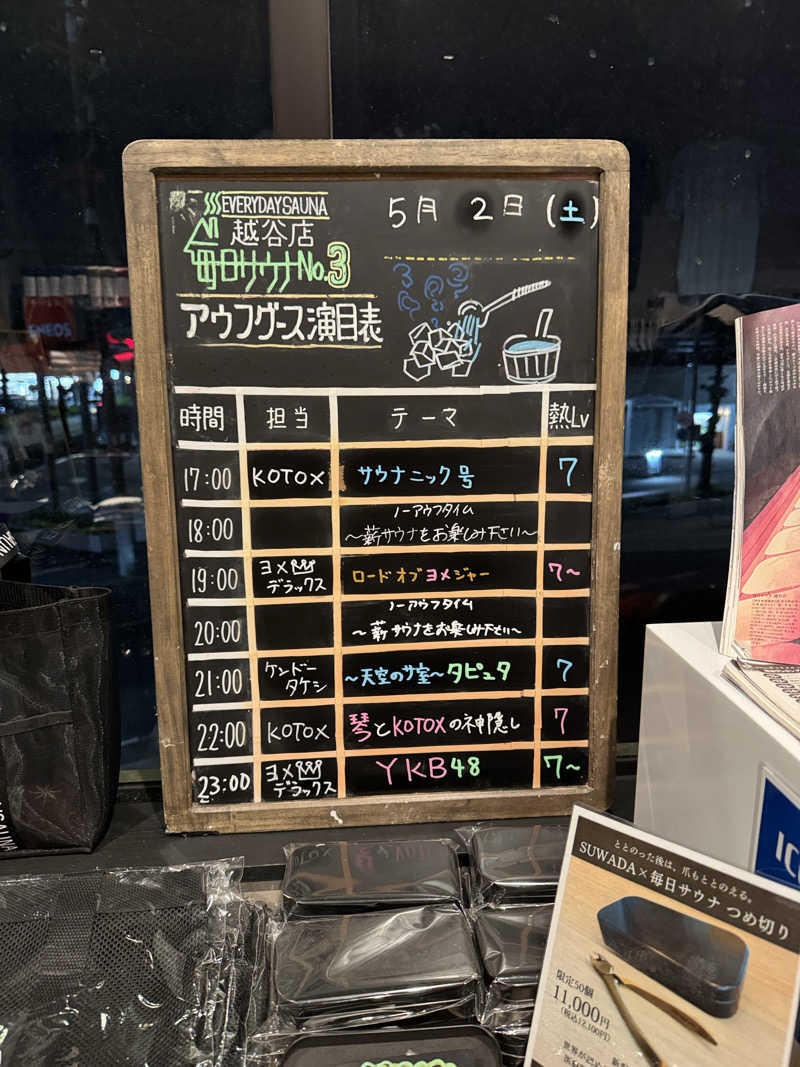 EVERYDAYSAUNA
越谷店
毎日サウナNo.3
アウフグース演目表
5月 2日 (土)
時間 担当 テーマ 熱Lv
17:00 KOTOX サウナニック号 7
18:00 ノーアウフタイム
〜薪サウナをお楽しみ下さい〜
19:00 ヨメデラックス ロードオブヨメジャー 7〜
20:00 ノーアウフタイム
〜薪サウナをお楽しみ下さい〜
21:00 ケンドータケシ 〜天空のサ室〜タピュタ 7
22:00 KOTOX 琴とKOTOXの神隠し 7
23:00 ヨメデラックス YKB48 7〜
ENEOS
IC
ととのった後は、爪もととのえる。
SUWADA×毎日サウナ つめ切り
限定50個
11,000円
(税込12,100円)